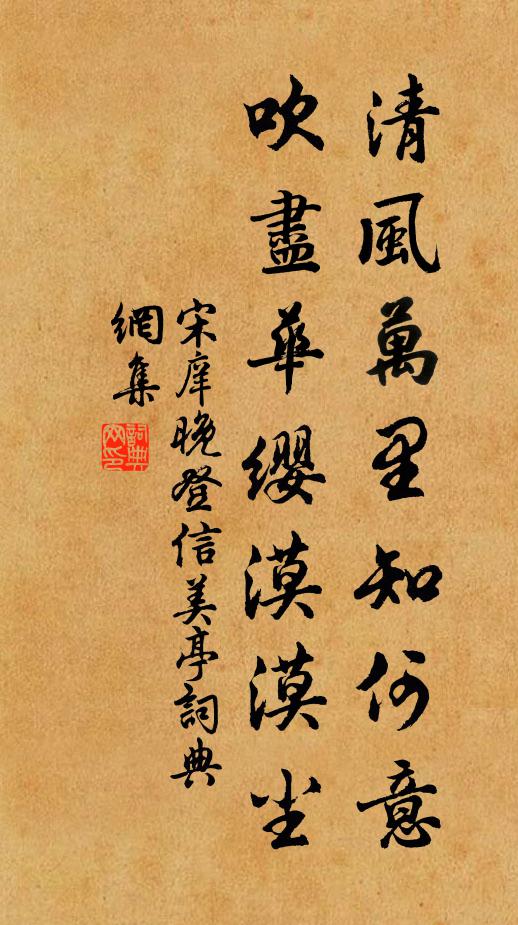 清風萬里知何意
吹盡華纓漠漠尘
宋庠晚登信美亭詞典
網集
詞典網印